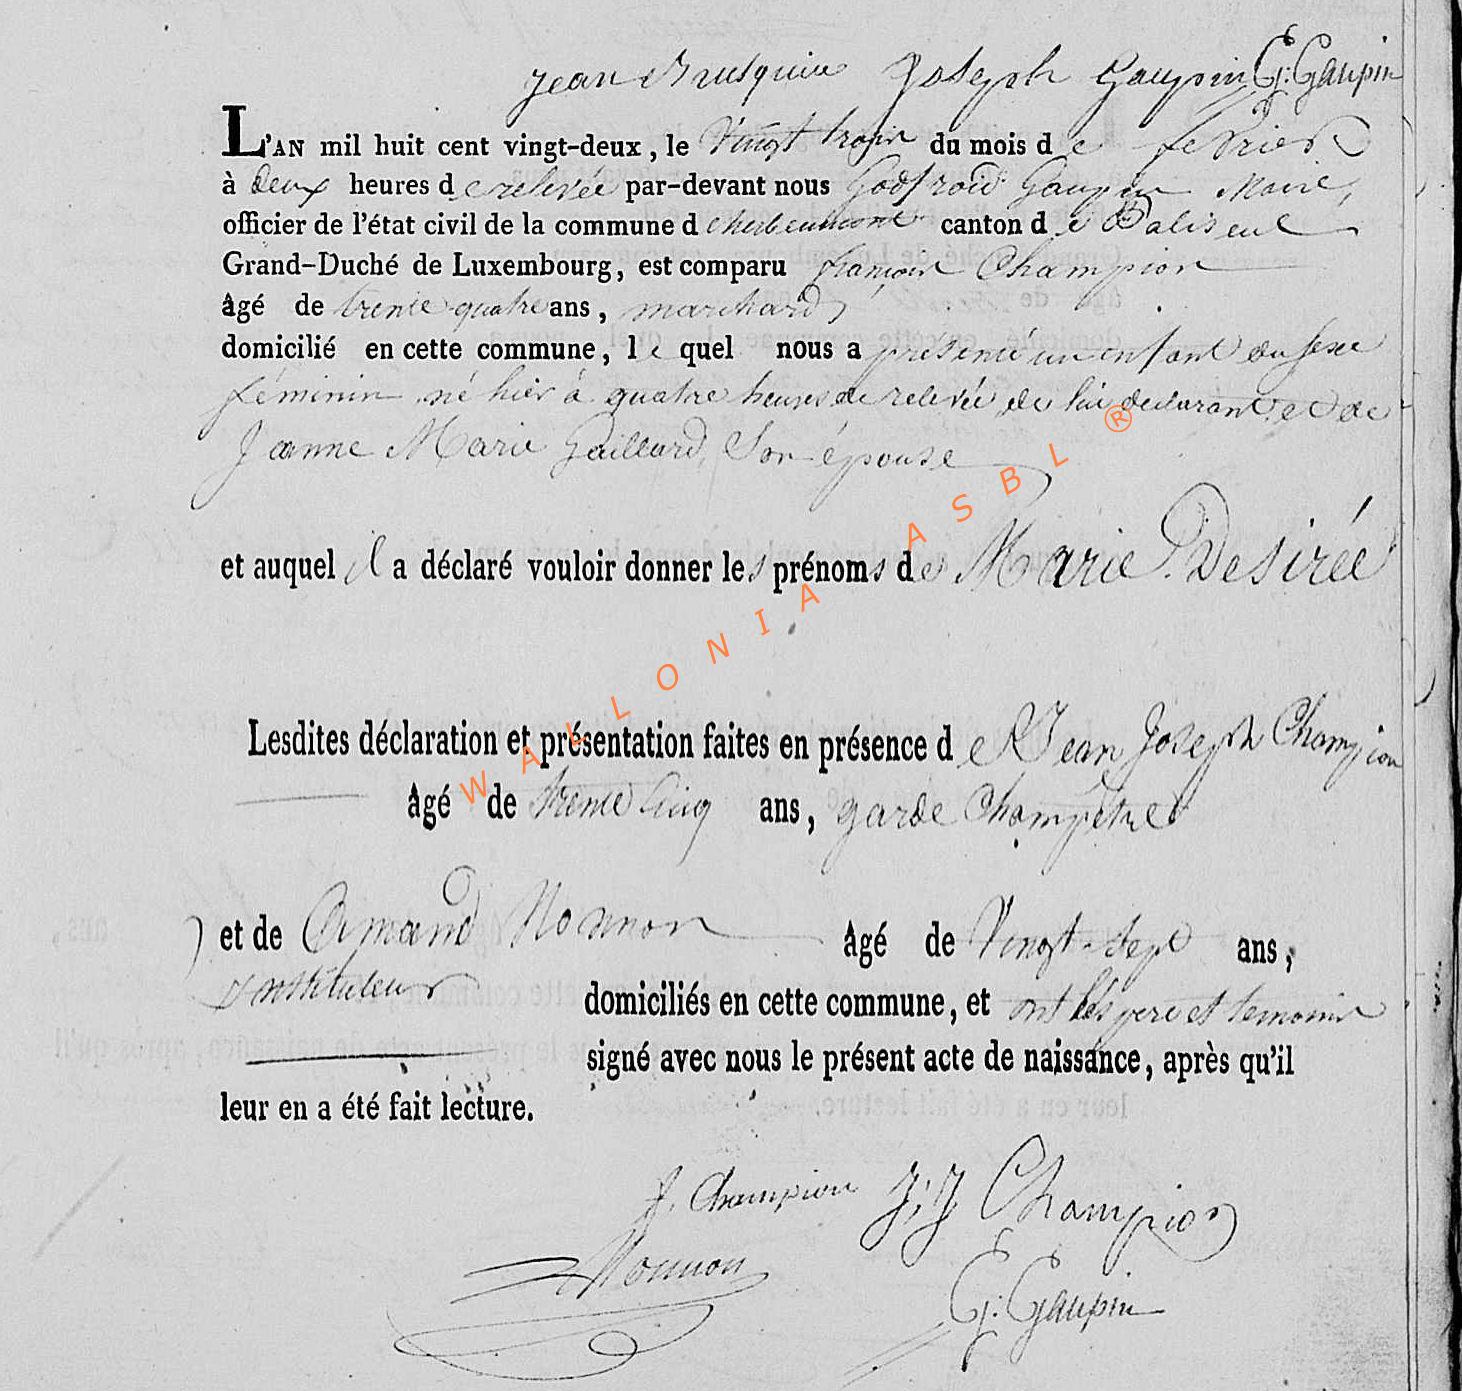 Jean Brusquin Joseph Gaupin G: Gaupin
L'AN mil huit cent vingt-deux, le Vingt trois du mois de fevrier
à deux heures de relevée par-devant nous Godfroid Gaupin Maire,
officier de l'état civil de la commune d'herbeumont canton de Paliseul
Grand-Duché de Luxembourg, est comparu françois Champion
âgé de trente quatre ans, marchand,
domicilié en cette commune, lequel nous a présenté un enfant du sexe
féminin né hier à quatre heures de relevée, de lui declarant et de
Jeanne Marie Gaillard, Son épouse
et auquel il a déclaré vouloir donner les prénoms de Marie Desirée
Lesdites déclaration et présentation faites en présence de Jean Joseph Champion
âgé de trente Cinq ans, garde Champêtre
et de Amand Nonnon âgé de Vingt-Sept ans,
instituteur domiciliés en cette commune, et ont les pere et temoins
signé avec nous le présent acte de naissance, après qu'il
leur en a été fait lecture.
f. Champion J: J Champion
Nonnon
G: Gaupin
WALLONIA ASBL ®